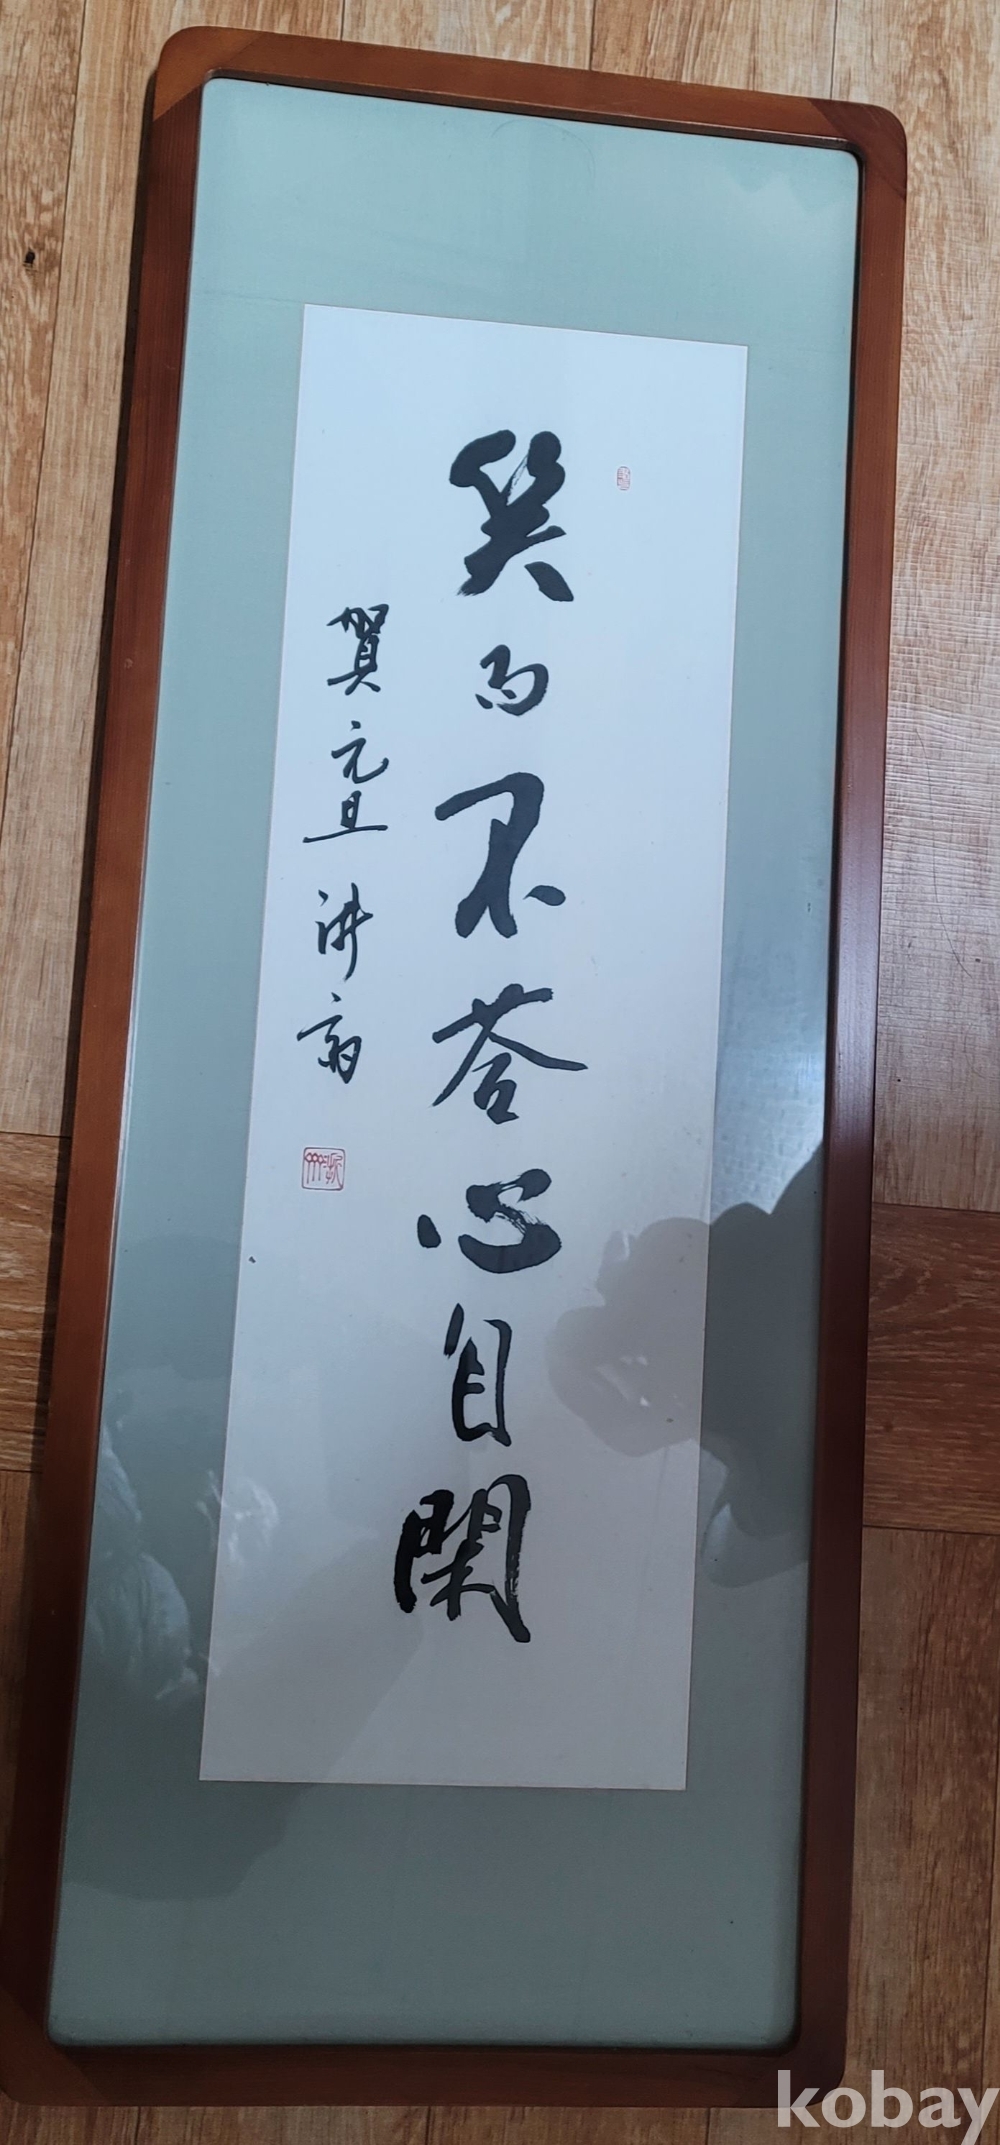 笑而不荅心自閑
賀元旦
kobay